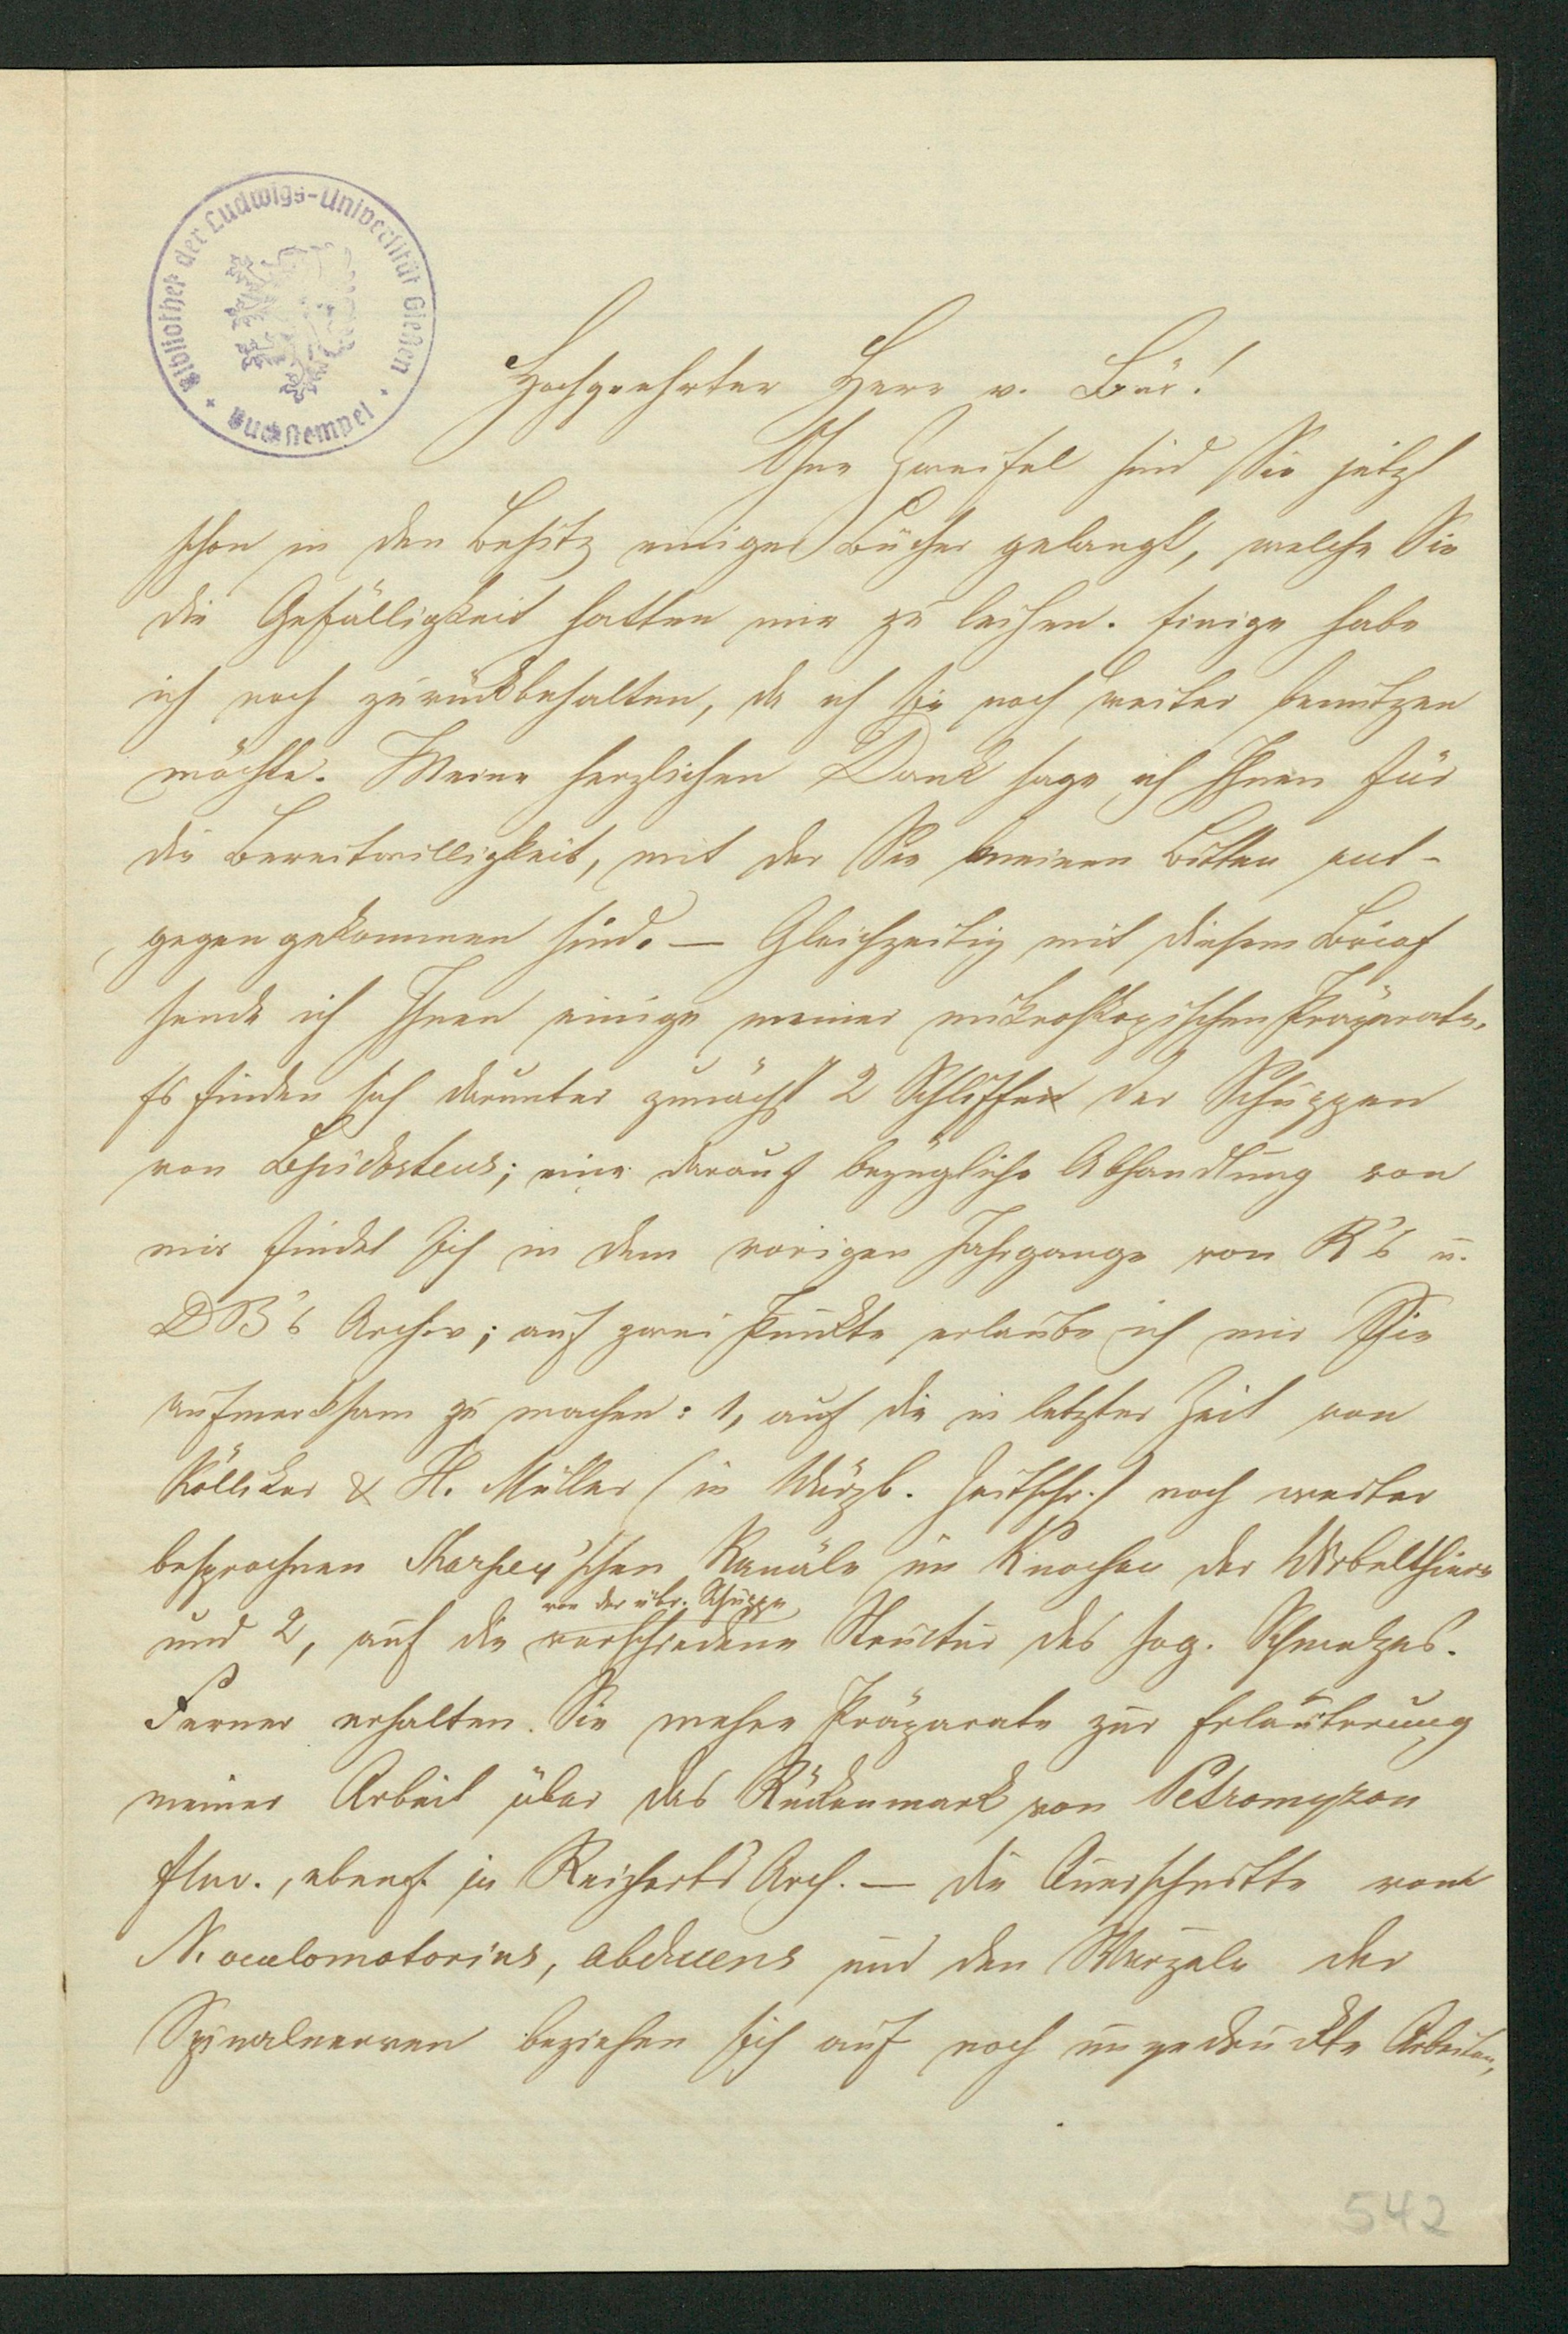 Bibliothek der Ludwigs-Universität Gießen
Buchstempel
Hochgeehrter Herr v. Bär!
Ohne Zweifel sind Sie jetzt
schon in den Besitz einiger Bücher gelangt, welche Sie
die Gefälligkeit hatten mir zu leihen. Einige habe
ich noch zurückbehalten, da ich sie noch weiter benutzen
möchte. Meine herzlichen Dank sage ich Ihnen für
die Bereitwilligkeit, mit der Sie meinen Bitten ent-
gegengekommen sind. — Gleichzeitig mit diesem Brief
sende ich Ihnen einige meiner mikroskopischen Präparate.
Es finden sich darunter zunächst 2 Schliffe der Schuppen
von Lepidosteus; eine darauf bezügliche Abhandlung von
mir findet sich in dem vorigen Jahrgange von R's u.
DB's Archiv; auf zwei Punkte erlaube ich mir Sie
aufmerksam zu machen: 1, auf die in letzter Zeit von
Kölliker & H. Müller (in Würzb. Zeitschr.) noch weiter
besprochnen Sharpey'schen Kanäle im Knochen der Wirbelthiere
von der übr. Schuppe
und 2, auf die verschiedene Structur des sog. Schmelzes.
Ferner erhalten Sie mehre Präparate zur Erläuterung
meiner Arbeit über das Rückenmark von Petromyzon
fluv., ebenf. in Reicherts Arch. — Die Querschnitte vom
N. oculomotorius, abducens und den Wurzeln der
Spinalnerven beziehen sich auf noch ungedruckte Arbeiten,
542